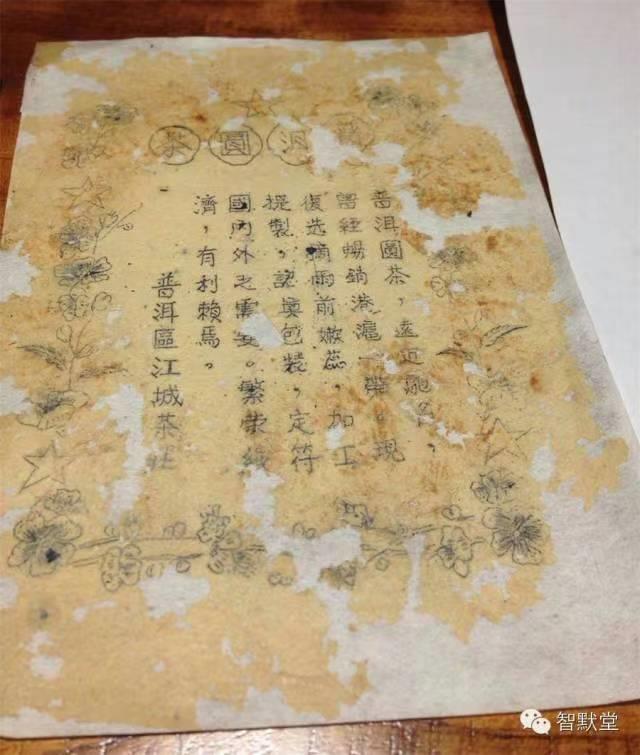 洱圓茶
普洱圓茶,遠近馳名,
曾經暢銷港滬一帶。現
復选摘雨前嫩蕊,加工
提製,認真包裝,定符
國內外之需要。繁荣經
濟,有利賴焉。
普洱區江城茶
智默堂